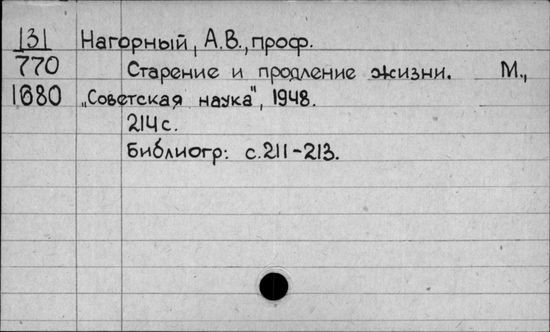 131 Нагорный, А.В., проф.
770 Старение и продление жизни. М.,
1680 „Советская наука", 1948.
214 с.
Библиогр: с. 211-213.